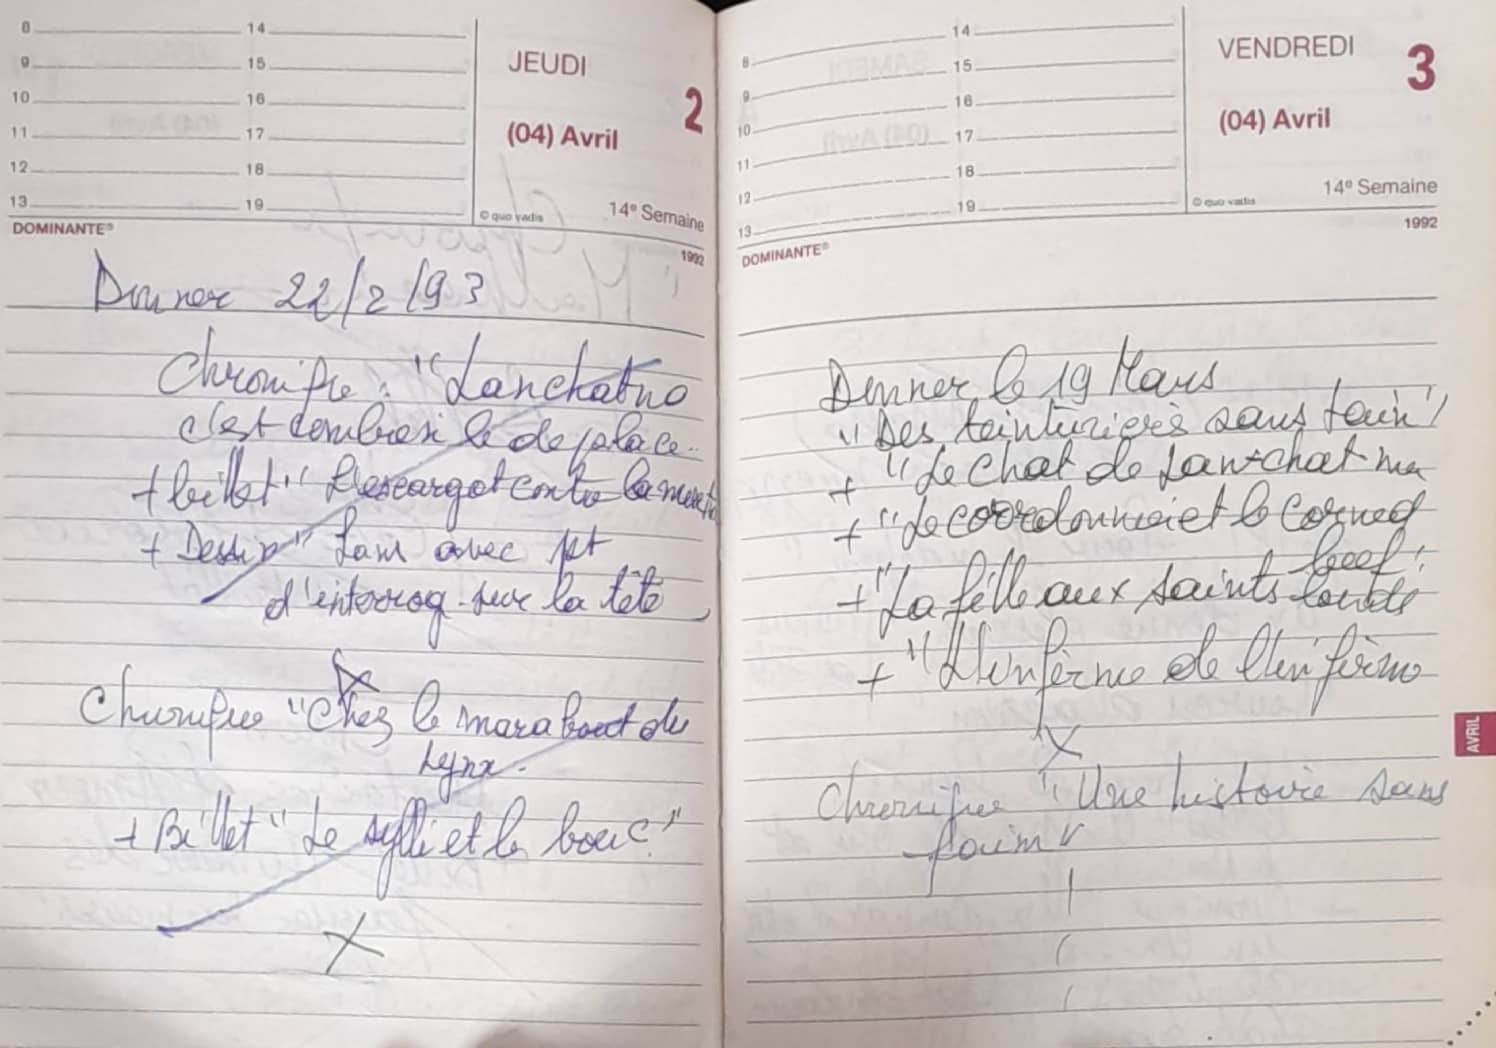 8 14
9 15
10 16
11 17
12 18
13 19
JEUDI 2
(04) Avril
© quo vadis 14e Semaine
DOMINANTE® 1992
Donner 22/2/93
"Lanchatno
c'est de place..
+ billet "L'escargot contre
+ Dessin " Lam avec pt
d'interrog. sur la tête
X
"Chez le marabout du
Lynx.
+ Billet "Le sylli et le bouc"
X
8 14
9 15
10 16
11 17
12 18
13 19
VENDREDI 3
(04) Avril
14e Semaine
© quo vadis
DOMINANTE® 1992
Donner le 19 Mars
"Des teinturiers sans
+ "Le chat de
+ "Le cordonnier et le corned
beef"
+ "La fille aux saints
+ "L'infirme de l'infirme
X
Chronique "Une histoire sans
faim"
AVRIL